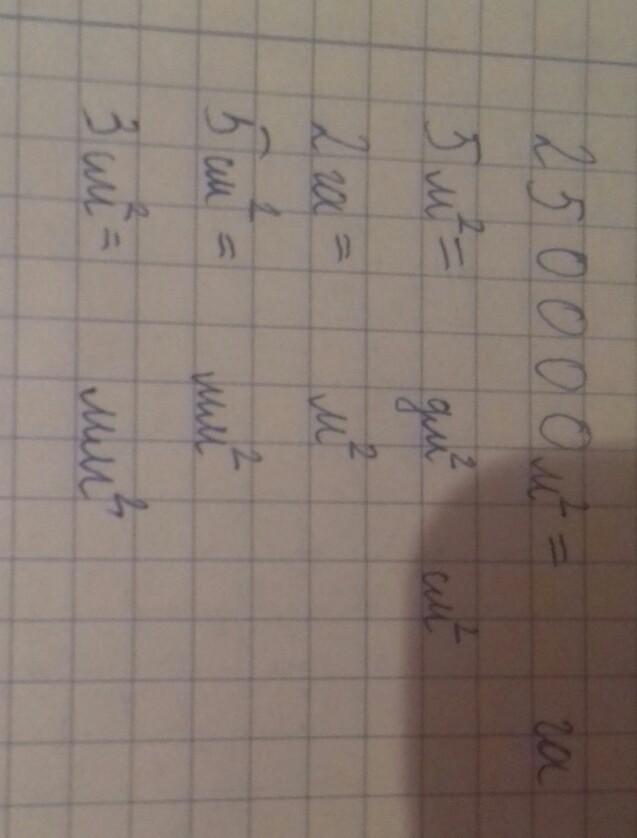 250000 м² = га
5 м² = дм² см²
2 га = м²
5 см² = мм²
3 см² = мм²